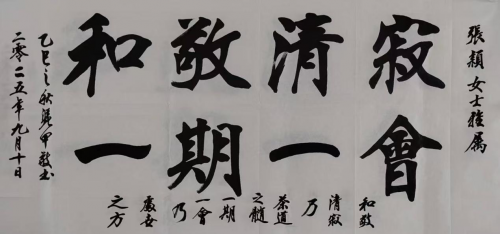 張穎女士雅属
和敬清寂
一期一會
和敬
清寂
乃
茶道
之髓
一期
一會
乃
處世
之方
乙巳之秋甲敬书
二零二五年九月十日